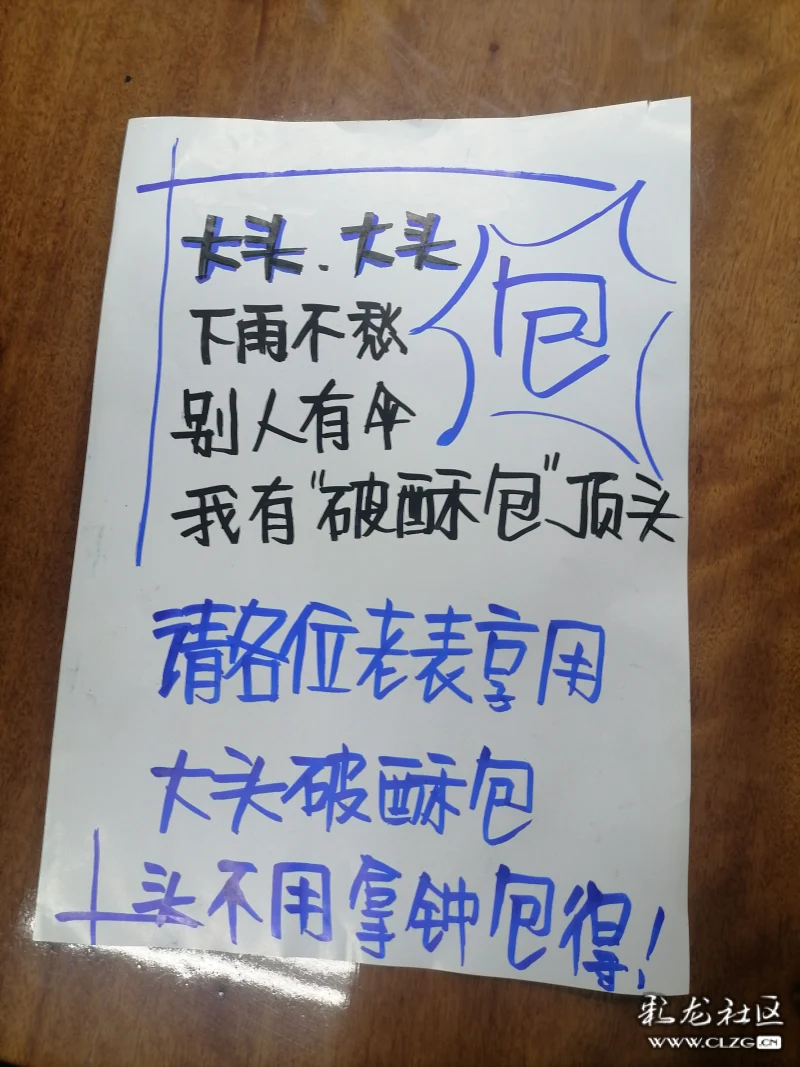 大头、大头
包
下雨不愁
别人有伞
我有“破酥包”顶头
请各位老表享用
大头破酥包
头不用拿钟包得!
彩龙社区
WWW.CLZG.CN